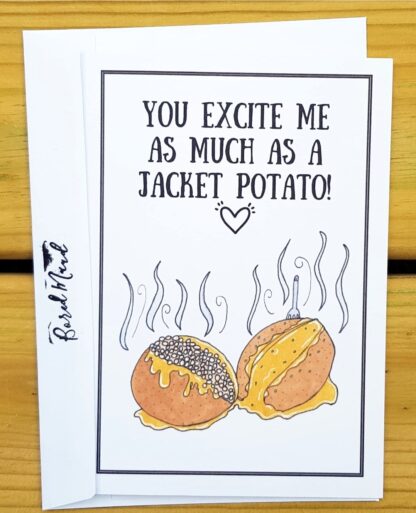 YOU EXCITE ME
AS MUCH AS A
JACKET POTATO!
Bored Mind